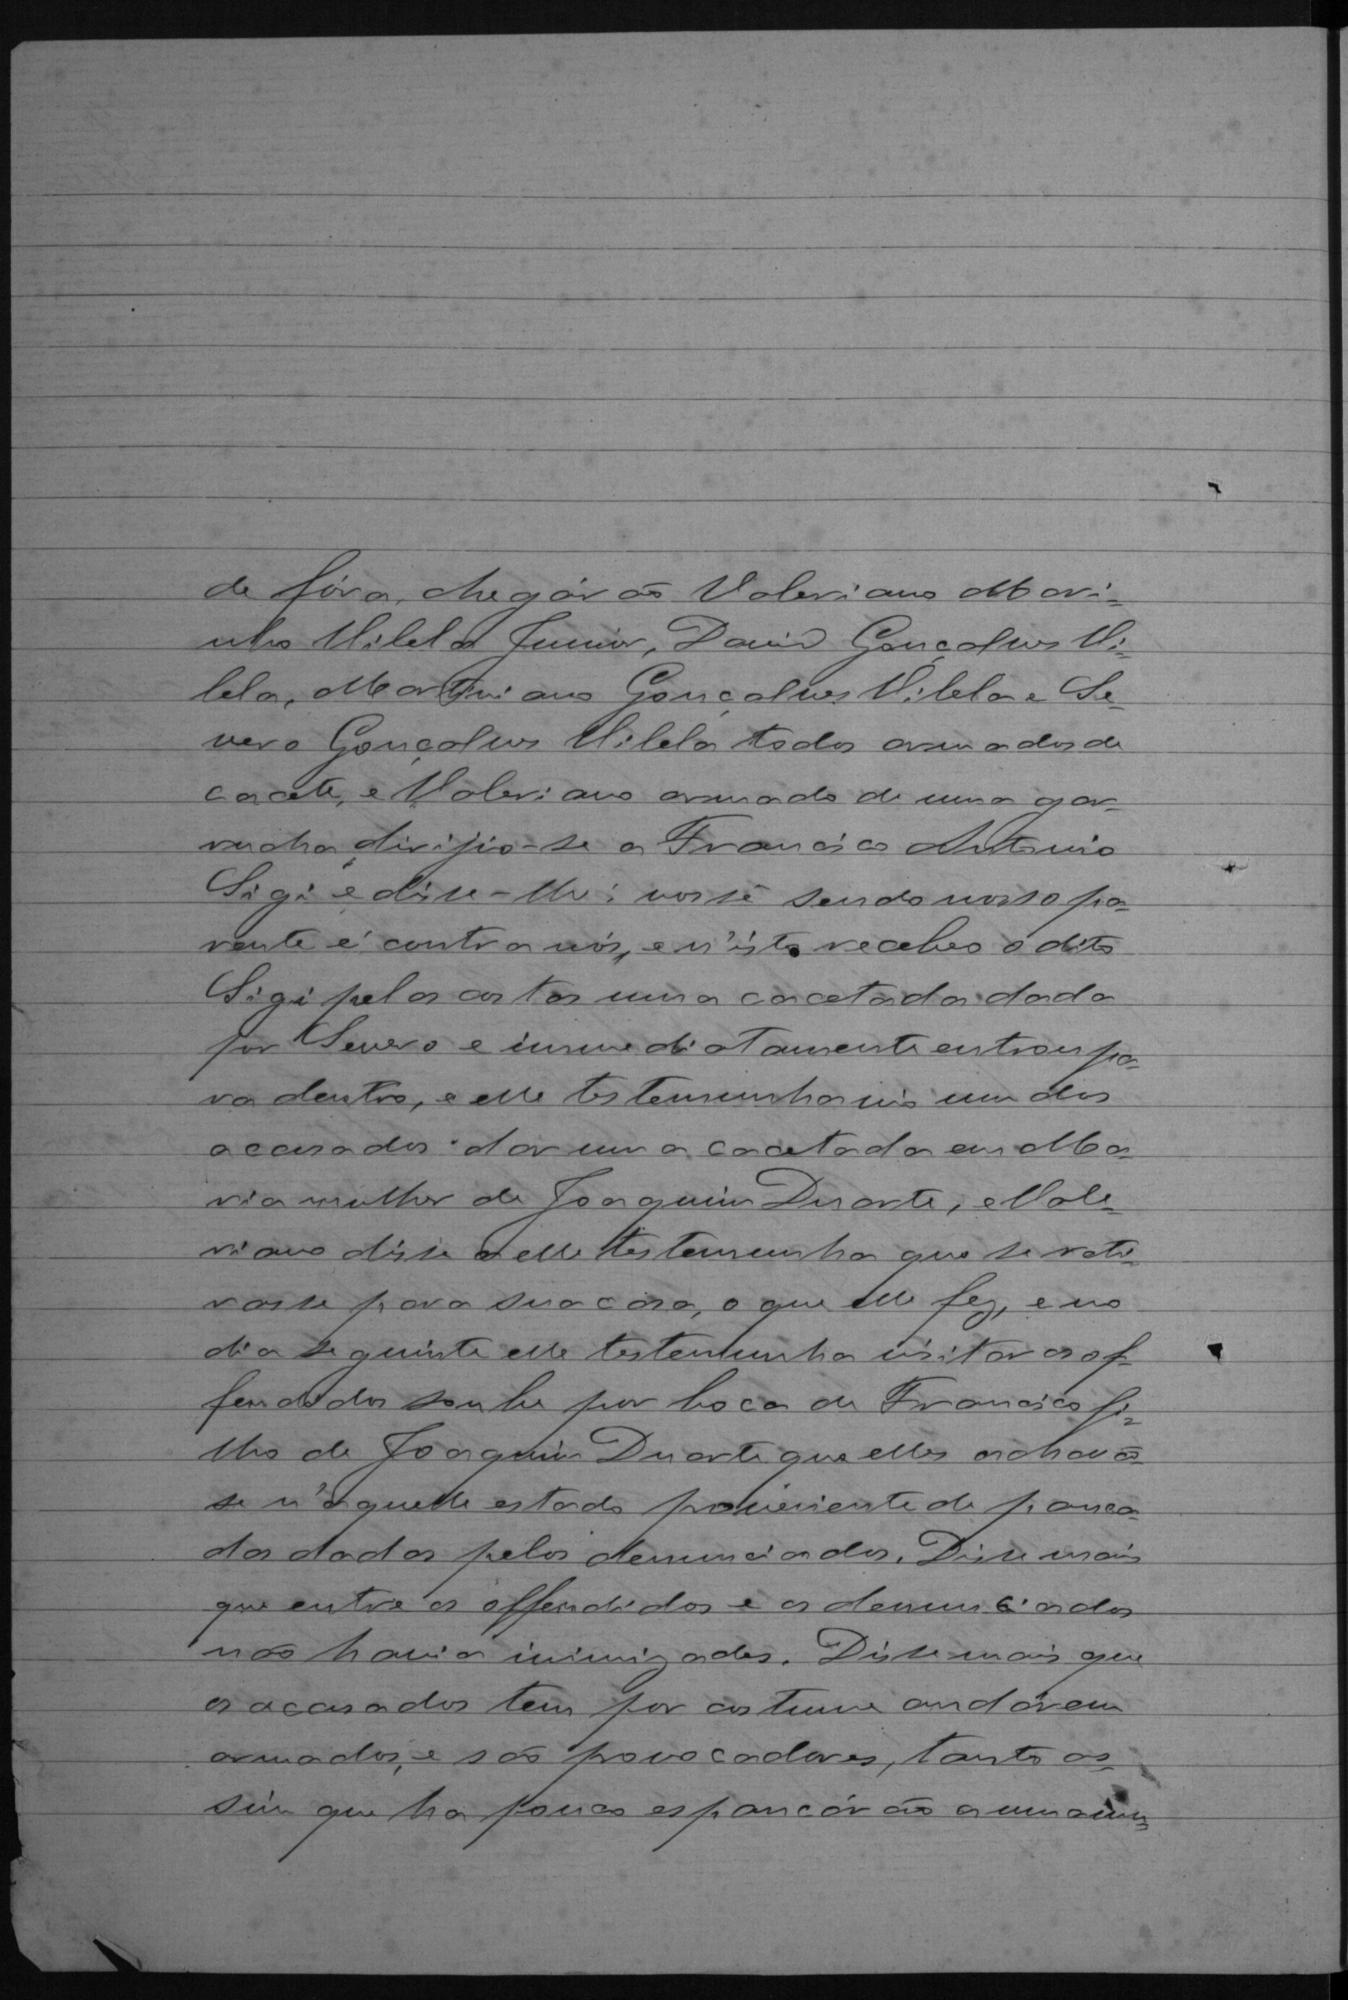 de fóra, chegárão Valeriano Mari-
nho Vilela Junior, David Gonçalves Vi-
lela, Martiniano Gonçalves Vilela e Se-
vero Gonçalves Vilela todos armados de
cacete, e Valeriano armado de uma gar-
rucha, dirijio-se a Francisco Antonio
Sigi e disse-lhe: vossê sendo nosso pa-
rente é contra nós, e n'isto recebeo o dito
Sigi pelas costas uma cacetada dada
por Severo e immediatamente entrou pa-
ra dentro, e elle testemunha vio um dos
acusados dar uma cacetada em Ma-
ria mulher de Joaquim Duarte, e Vale-
riano disse a elle testemunha que se reti-
rasse para sua casa, o que elle fez, e no
dia seguinte elle testemunha visitar os of-
fendidos soube por boca de Francisco fi-
lho de Joaquim Duarte que elles achavão
se n'aquelle estado proveniente de panca-
das dadas pelos denunciados. Disse mais
que entre os offendidos e os denunciados
não havia inimizades. Disse mais que
os acusados tem por costume andárem
armados, e são provocadores, tanto as-
sim que ha pouco espancárão a uma